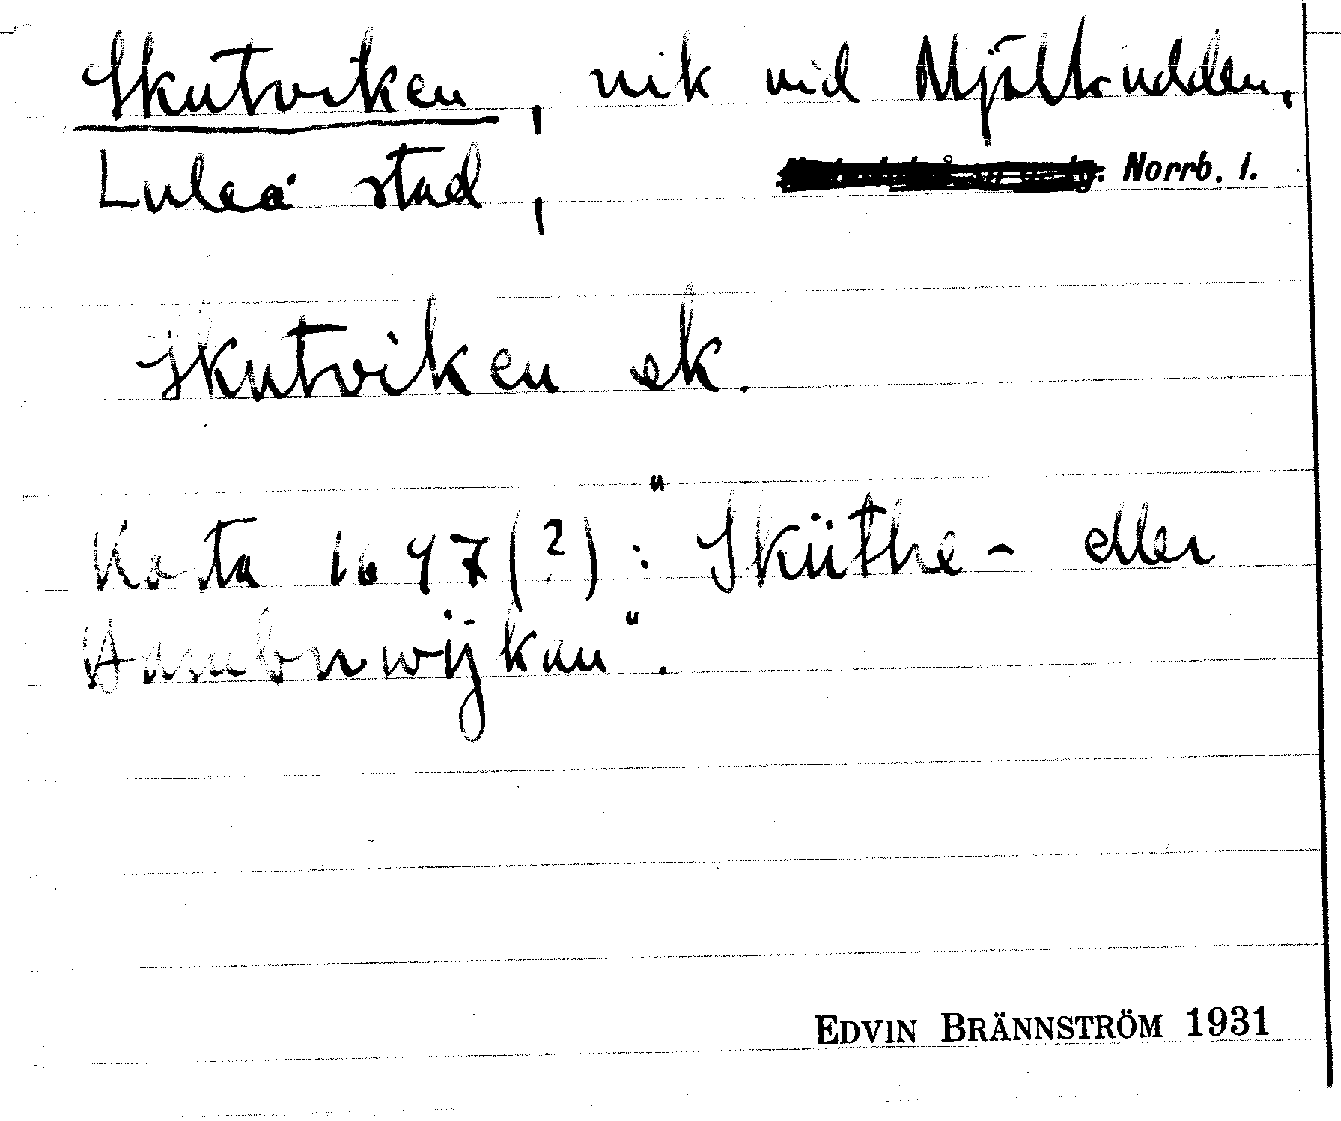 Skutviken, vik vid Mjölkudden,
Luleå stad, Norrb. l.
Skutviken ek.
Karta 1647(?): "Sküthe- eller
Hambnwijkan".
EDVIN BRÄNNSTRÖM 1931